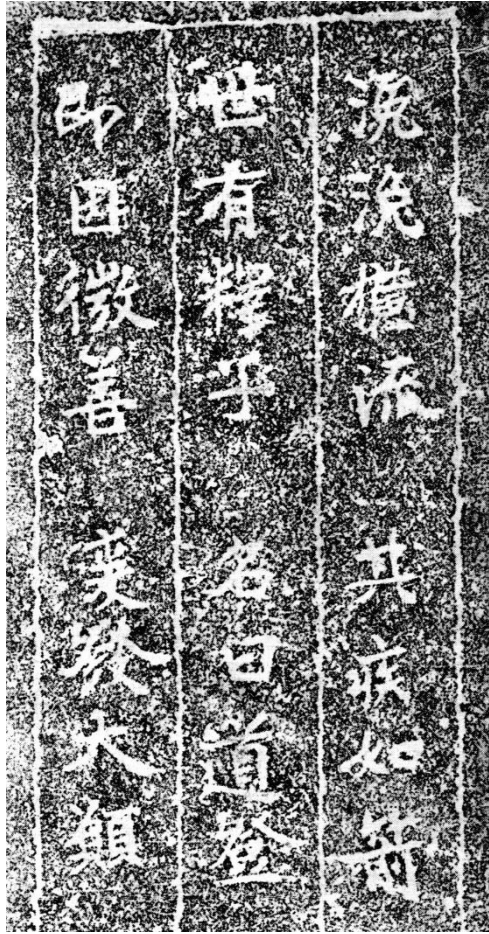 浼浼橫流 其疾如箭
世有釋子 名曰道登
即因微善 爰發大願